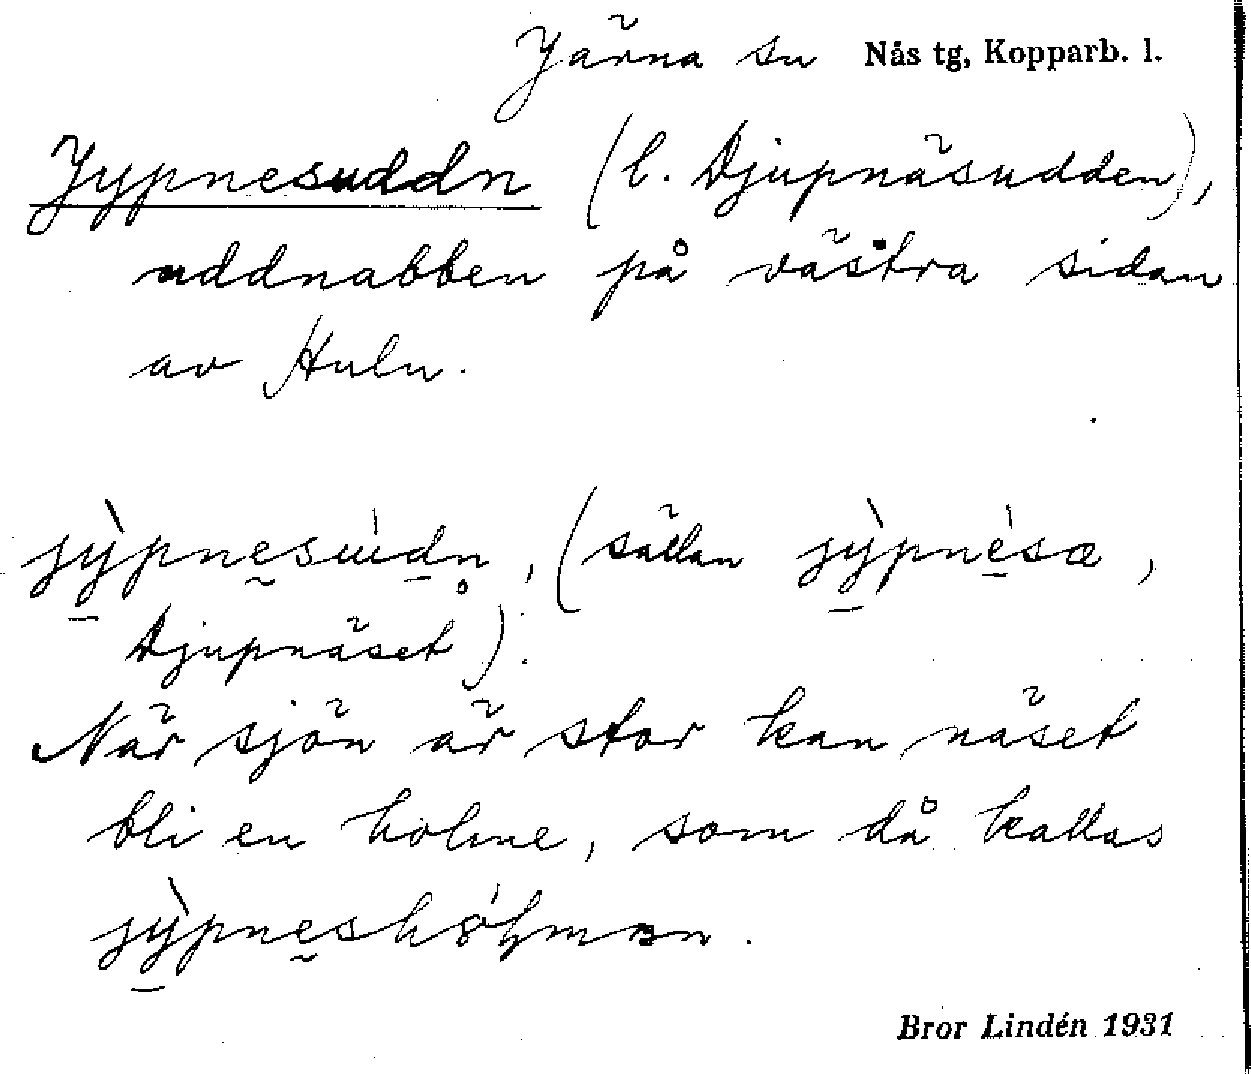 Järna sn Nås tg, Kopparb. l.
Jypnesuddn (l. Djupnäsudden),
uddnabben på västra sidan
av Huln.
jỳpnesúdn, (sällan jỳpnésæ,
Djupnäset).
När sjön är stor kan näset
bli en holme, som då kallas
jỳpneshólmən.
Bror Lindén 1931